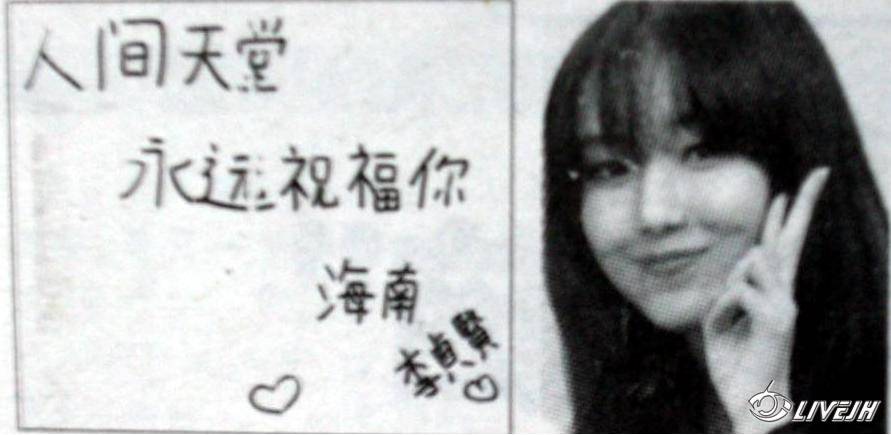 人间天堂
永远祝福你
海南
李貞賢
LIVEJH